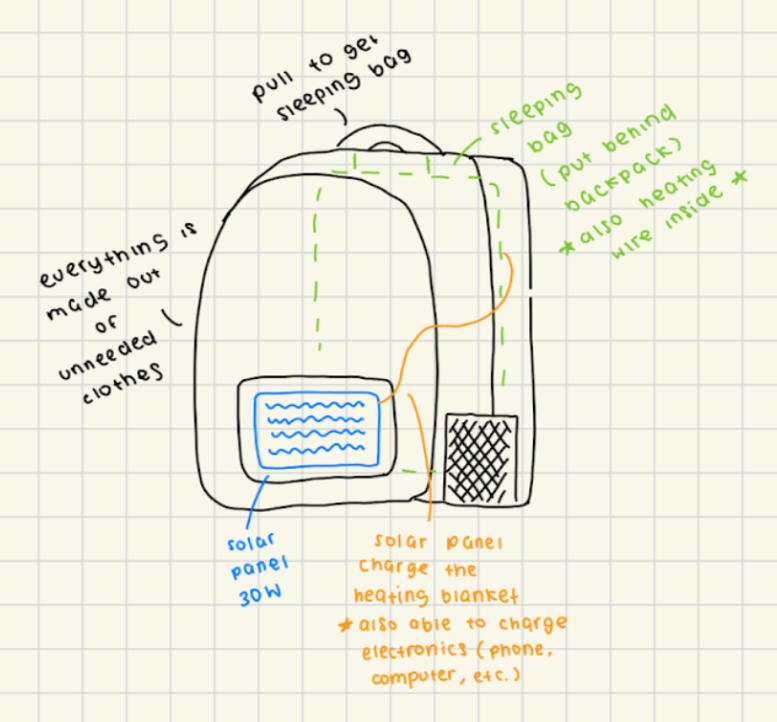 pull to get
sleeping bag
sleeping
bag
(put behind
backpack)
★ also heating
wire inside ★
everything is
made out
of
unneeded
clothes
solar
panel
30W
solar panel
charge the
heating blanket
★ also able to charge
electronics (phone,
computer, etc.)